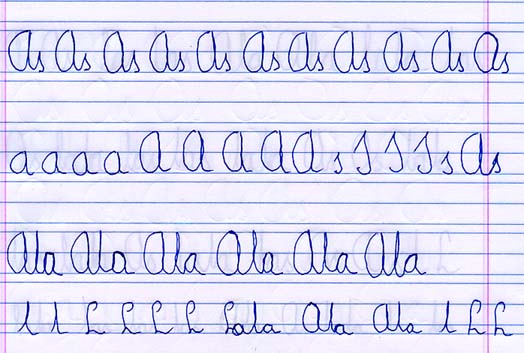 As As As As As As As As As As As
a a a a A A A A A s S S S s As
Ala Ala Ala Ala Ala Ala
l l L L L L Lala Ala Ala l L L